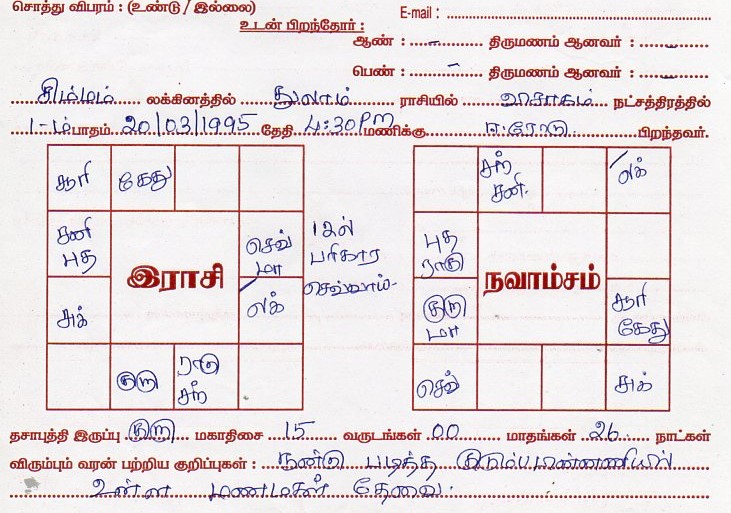 சொத்து விபரம் : (உண்டு / இல்லை)
E-mail :
உடன் பிறந்தோர் :
ஆண் : – திருமணம் ஆனவர் : –
பெண் : – திருமணம் ஆனவர் : –
சிம்மம் லக்கினத்தில் துலாம் ராசியில் விசாகம் நட்சத்திரத்தில்
1-ம் பாதம் 20/03/1995 தேதி 4:30PM மணிக்கு ஈரோடு பிறந்தவர்.
சூரி கேது
சனி புத
செவ் மா
1ல் பரிகார செவ்வாய்-
இராசி
சுக்
லக்
குரு
ராகு சந்
சந் சனி
லக்
புத ராகு
நவாம்சம்
குரு மா
சூரி கேது
செவ்
சுக்
தசாபுத்தி இருப்பு குரு மகாதிசை 15 வருடங்கள் 00 மாதங்கள் 26 நாட்கள்
விரும்பும் வரன் பற்றிய குறிப்புகள் : நன்கு படித்த குடும்ப பின்னணியில்
உள்ள மணமகள் தேவை.